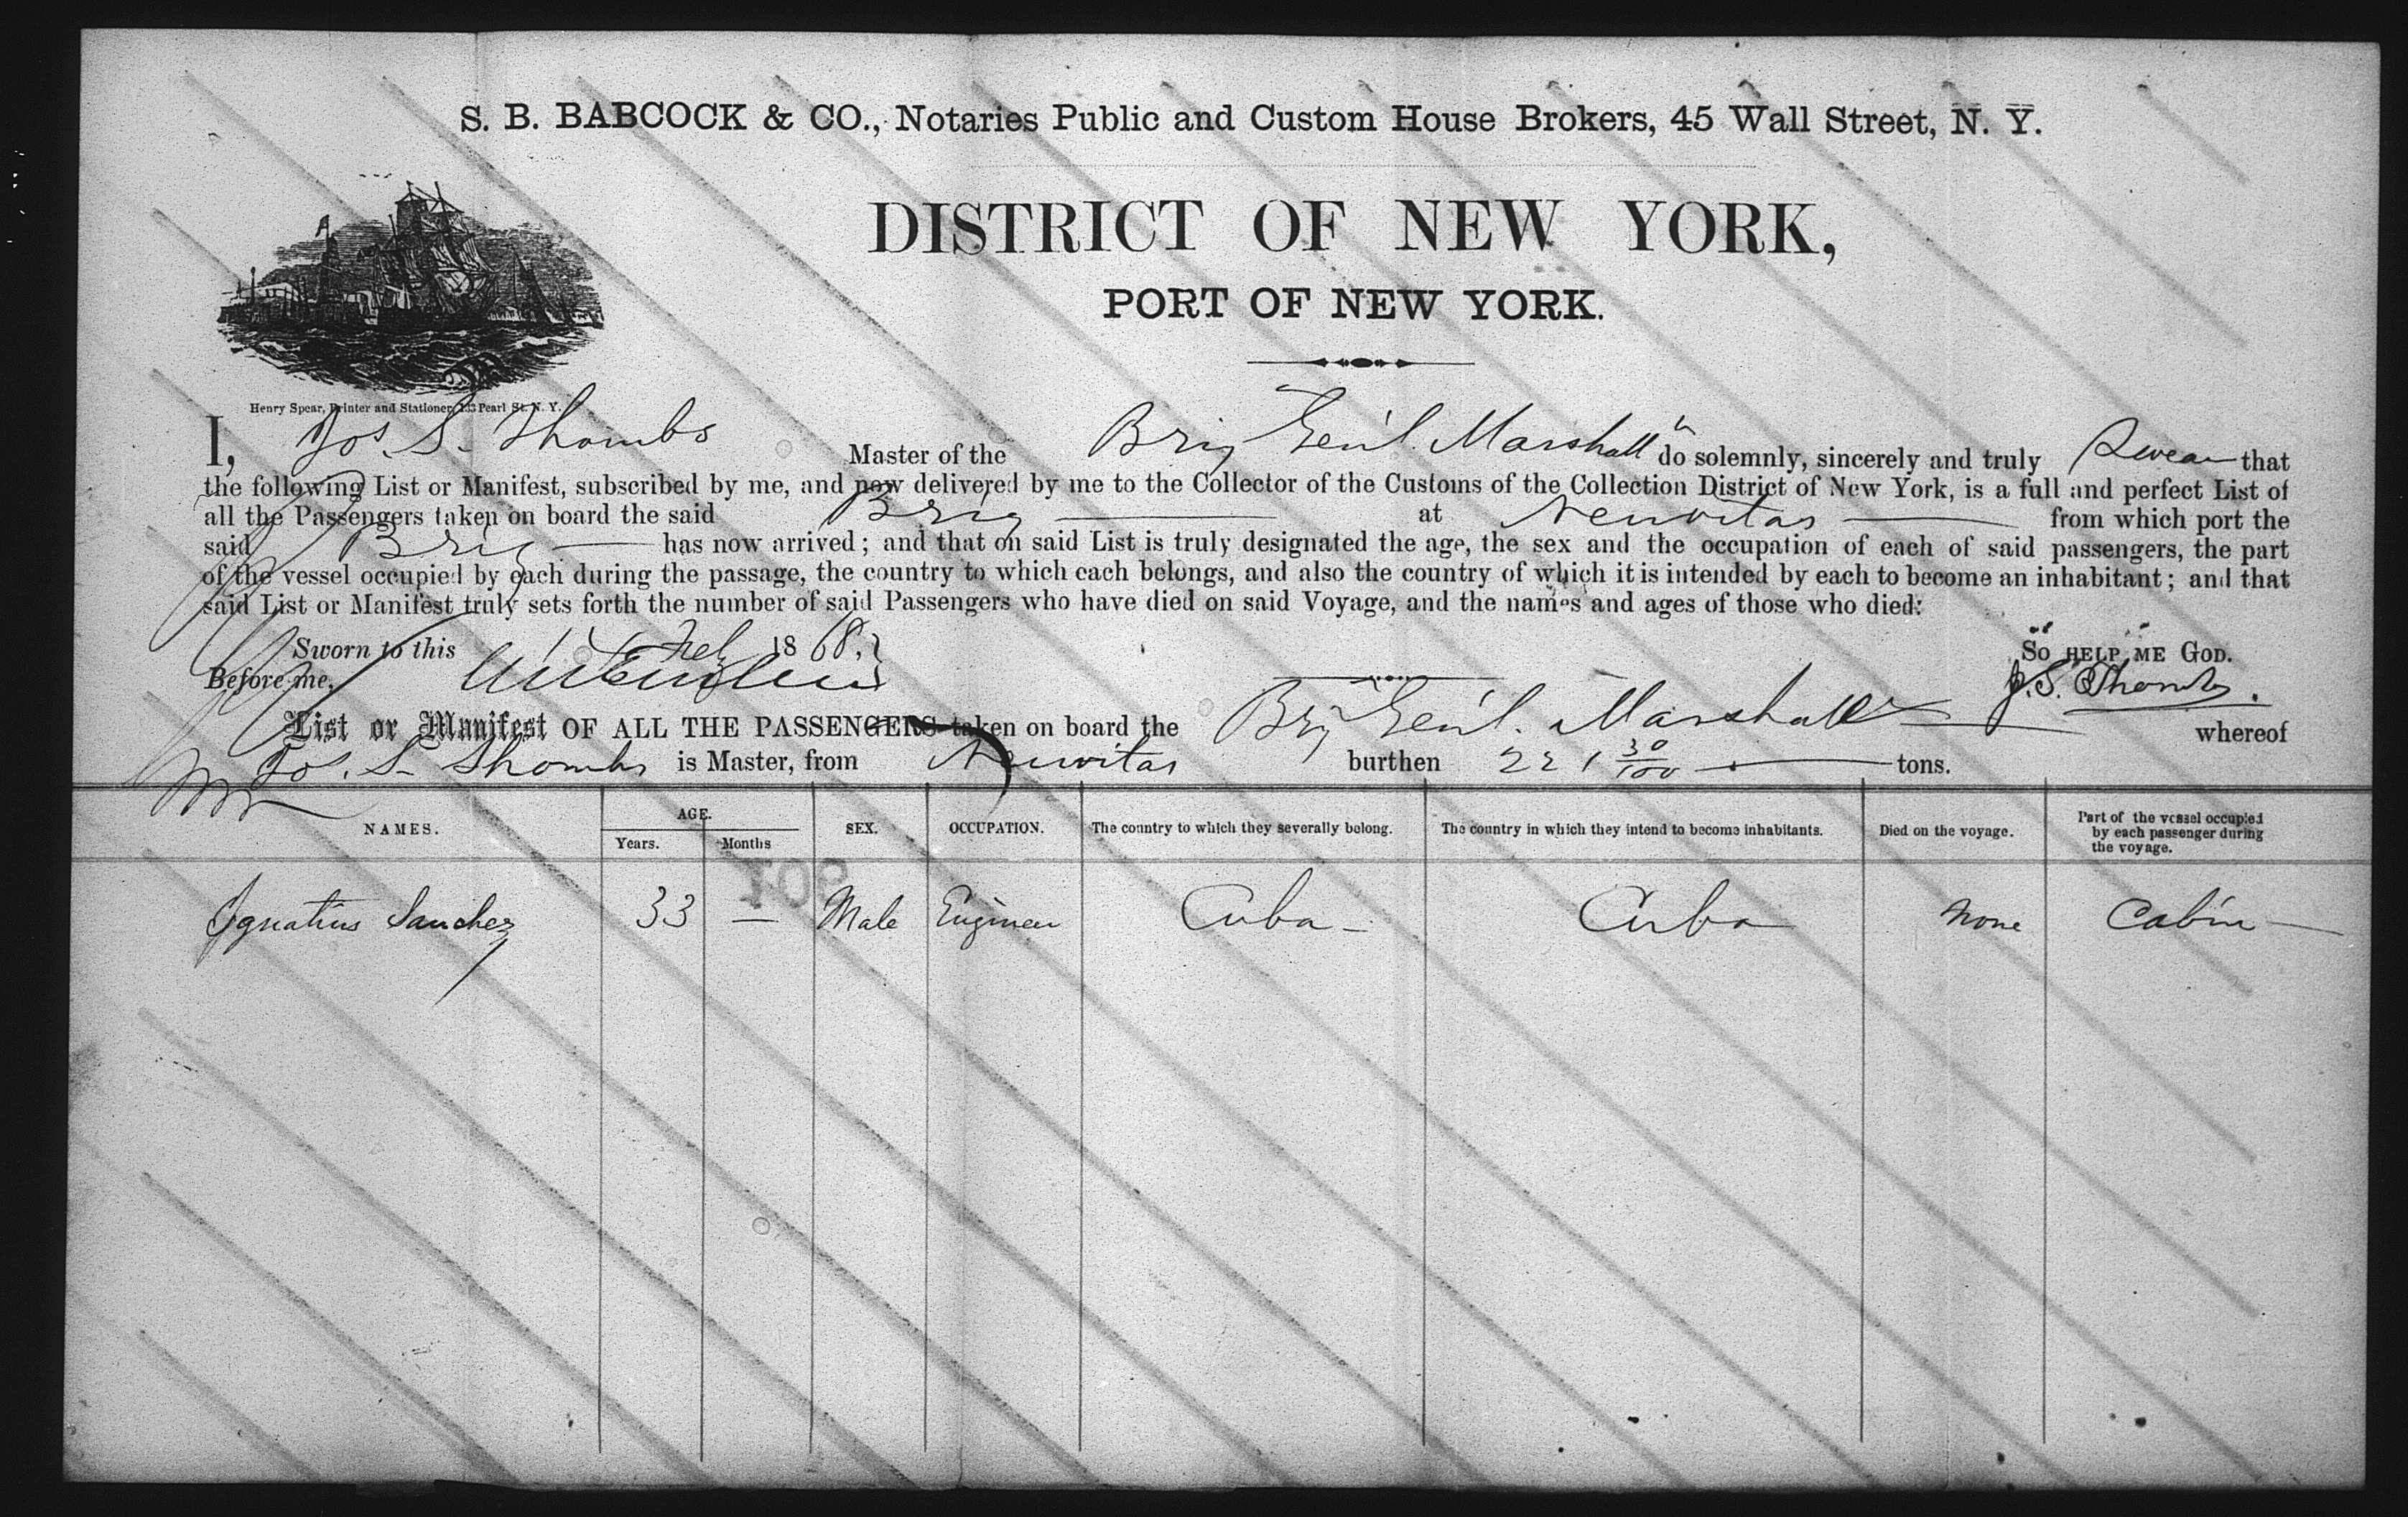 S. B. BABCOCK & CO., Notaries Public and Custom House Brokers, 45 Wall Street, N. Y.
DISTRICT OF NEW YORK,
PORT OF NEW YORK.
Henry Spear, Printer and Stationer, 133 Pearl St. N. Y.
I, Jos. S. Thombs Master of the Brig Gen'l. Marshall" do solemnly, sincerely and truly Swear that
the following List or Manifest, subscribed by me, and now delivered by me to the Collector of the Customs of the Collection District of New York, is a full and perfect List of
all the Passengers taken on board the said Brig at Neuvitas from which port the
said Brig has now arrived; and that on said List is truly designated the age, the sex and the occupation of each of said passengers, the part
of the vessel occupied by each during the passage, the country to which each belongs, and also the country of which it is intended by each to become an inhabitant; and that
said List or Manifest truly sets forth the number of said Passengers who have died on said Voyage, and the names and ages of those who died:
Sworn to this Feb 1868. So HELP ME GOD.
Before me, J. S. Thombs.
List or Manifest OF ALL THE PASSENGERS taken on board the Brig Gen'l. Marshall whereof
Jos. S. Thombs is Master, from Neuvitas burthen 221 30/100 tons.
NAMES. AGE. Years. Months SEX. OCCUPATION. The country to which they severally belong. The country in which they intend to become inhabitants. Died on the voyage. Part of the vessel occupied by each passenger during the voyage.
Ignatius Sanchez 33 — Male Engineer Cuba - Cuba None Cabin